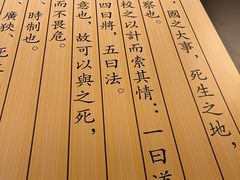 ，國之大事，死生之地，
察也。
校之以計而索其情：一曰道
四曰將，五曰法。
意也，故可以與之死，
而不畏危。
時制也。
廣狹、死